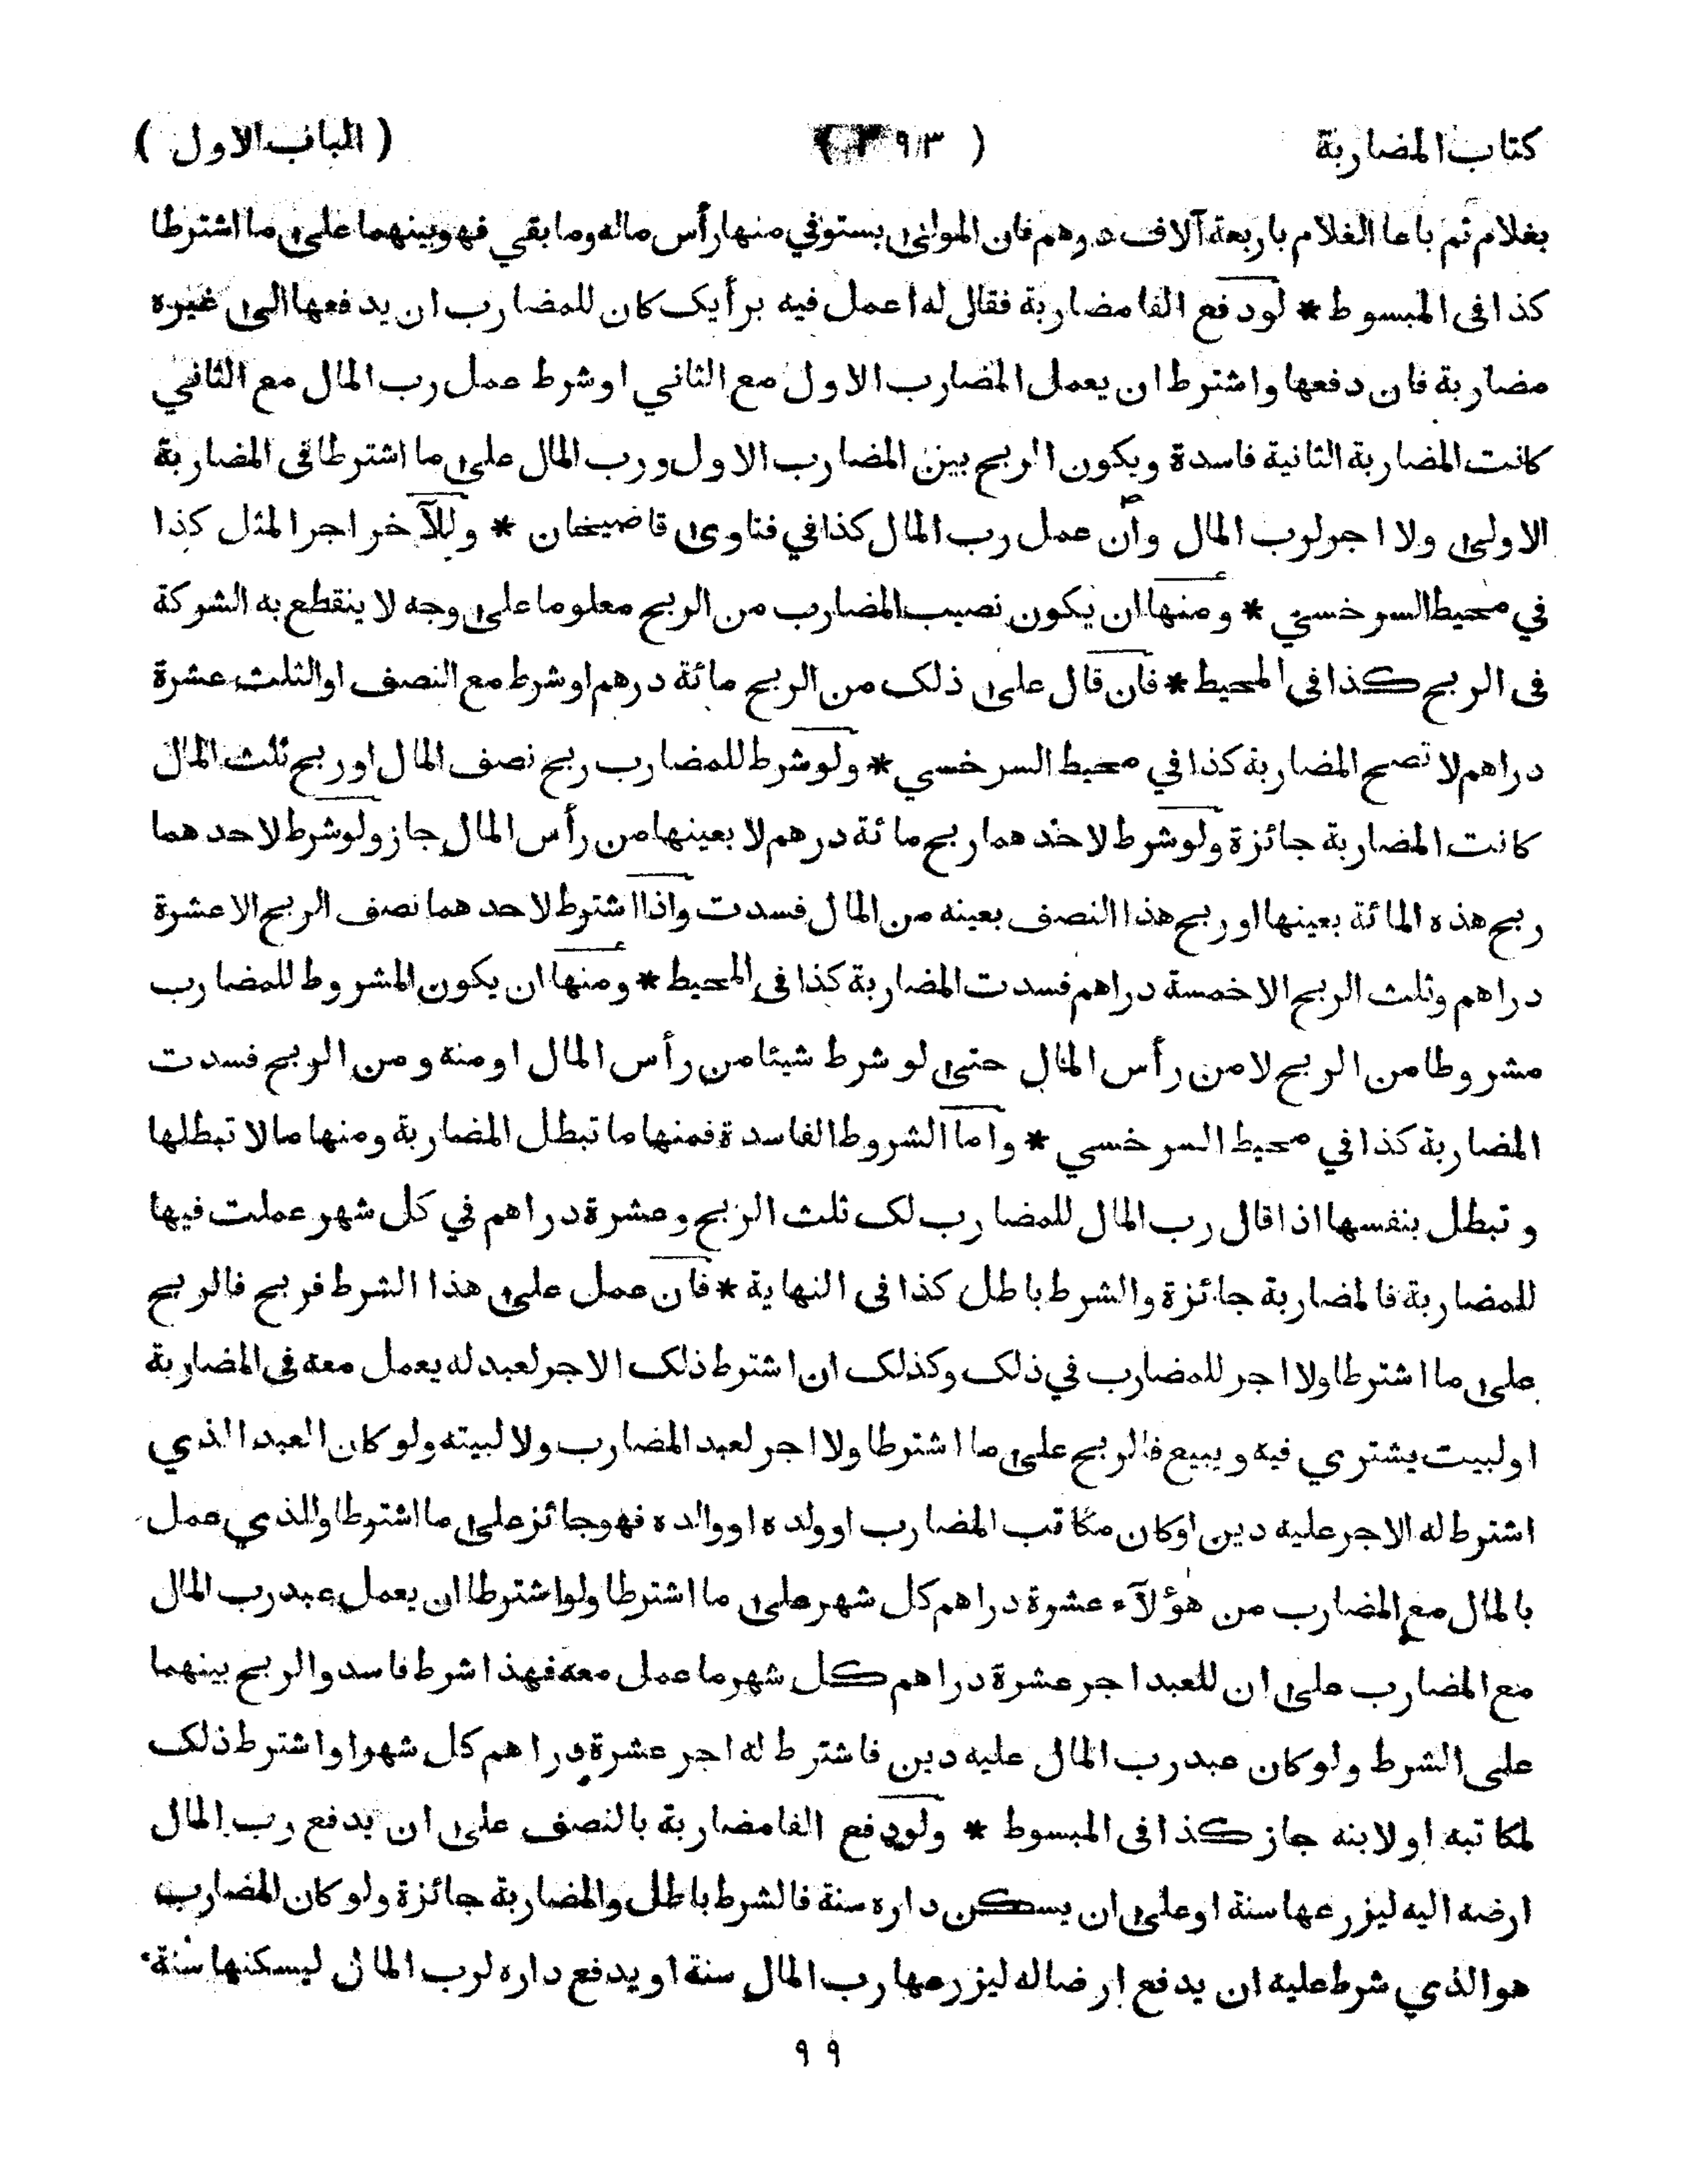 كتاب المضاربة
( ٣٩٣ )
( الباب الاول )
بغلام ثم باعا الغلام باربعة آلاف درهم فان المولى يستوفي منها رأس ماله وما بقي فهو بينهما على ما اشترطا
كذا فى المبسوط * لو دفع الفا مضاربة فقال له اعمل فيه برأيك كان للمضارب ان يدفعها الى غيره
مضاربة فان دفعها واشترط ان يعمل المضارب الاول مع الثاني او شرط عمل رب المال مع الثاني
كانت المضاربة الثانية فاسدة ويكون الربح بين المضارب الاول ورب المال على ما اشترطا فى المضاربة
الاولى ولا اجر لرب المال وان عمل رب المال كذا في فتاوى قاضيخان * وللآخر اجر المثل كذا
في محيط السرخسي * ومنها ان يكون نصيب المضارب من الربح معلوما على وجه لا ينقطع به الشركة
فى الربح كذا فى المحيط * فان قال على ذلك من الربح مائة درهم او شرط مع النصف او الثلث عشرة
دراهم لا تصح المضاربة كذا في محيط السرخسي * ولو شرط للمضارب ربح نصف المال او ربح ثلث المال
كانت المضاربة جائزة ولو شرط لاحدهما ربح مائة درهم لا بعينها من رأس المال جاز ولو شرط لاحدهما
ربح هذه المائة بعينها او ربح هذا النصف بعينه من المال فسدت واذا اشترط لاحدهما نصف الربح الا عشرة
دراهم وثلث الربح الا خمسة دراهم فسدت المضاربة كذا فى المحيط * ومنها ان يكون المشروط للمضارب
مشروطا من الربح لا من رأس المال حتى لو شرط شيئا من رأس المال او منه ومن الربح فسدت
المضاربة كذا في محيط السرخسي * واما الشروط الفاسدة فمنها ما تبطل المضاربة ومنها ما لا تبطلها
و تبطل بنفسها اذا قال رب المال للمضارب لك ثلث الربح وعشرة دراهم في كل شهر عملت فيها
للمضاربة فالمضاربة جائزة والشرط باطل كذا فى النهاية * فان عمل على هذا الشرط فربح فالربح
على ما اشترطا ولا اجر للمضارب في ذلك وكذلك ان اشترط ذلك الاجر لعبد له يعمل معه فى المضاربة
او لبيت يشتري فيه ويبيع فالربح على ما اشترطا ولا اجر لعبد المضارب ولا لبيته ولو كان العبد الذي
اشترط له الاجر عليه دين او كان مكاتب المضارب او ولده او والده فهو جائز على ما اشترطا وللذي عمل
بالمال مع المضارب من هؤلآء عشرة دراهم كل شهر على ما اشترطا ولو اشترطا ان يعمل عبد رب المال
مع المضارب على ان للعبد اجر عشرة دراهم كل شهر ما عمل معه فهذا شرط فاسد والربح بينهما
على الشرط ولو كان عبد رب المال عليه دين فاشترط له اجر عشرة دراهم كل شهر او اشترط ذلك
لمكاتبه او لابنه جاز كذا فى المبسوط * ولو دفع الفا مضاربة بالنصف على ان يدفع رب المال
ارضه اليه ليزرعها سنة او على ان يسكن داره سنة فالشرط باطل والمضاربة جائزة ولو كان المضارب
هو الذي شرط عليه ان يدفع ارضا له ليزرعها رب المال سنة او يدفع داره لرب المال ليسكنها سنة
٩٩